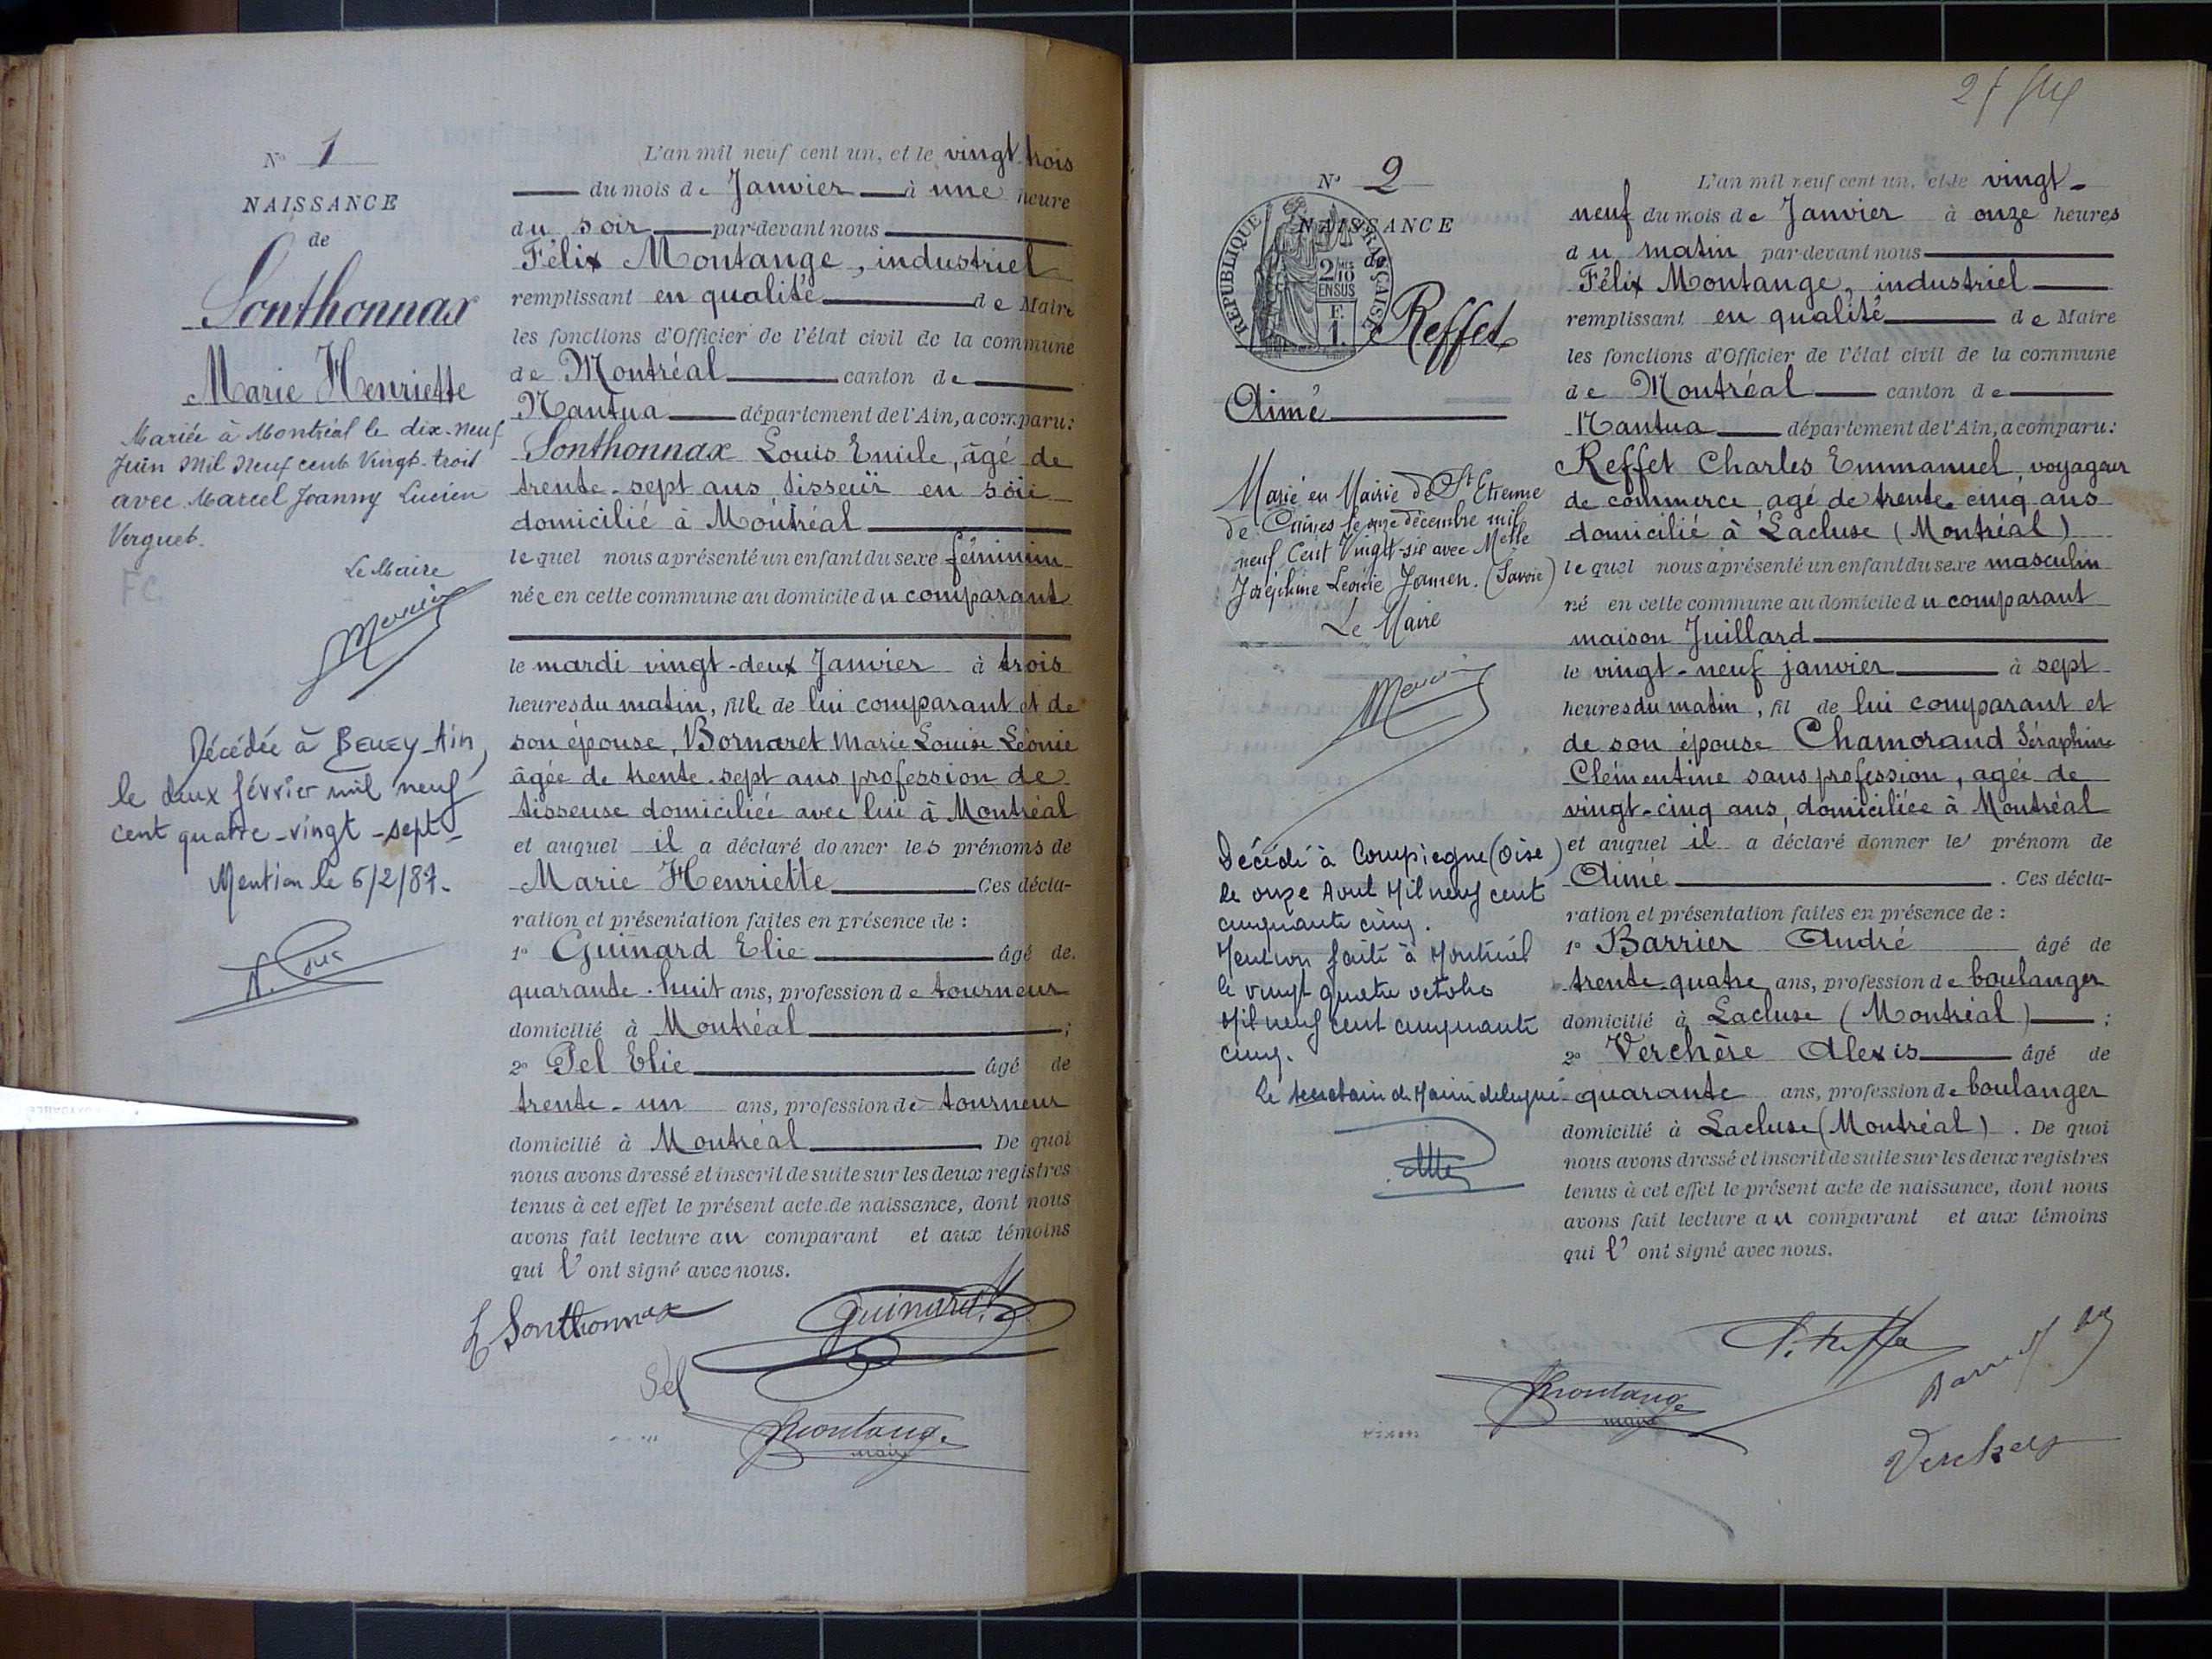 N° 1
NAISSANCE
de
Sonthonnax
Marie Henriette
Mariée à Montréal le dix-neuf
Juin Mil Neuf cent Vingt-trois
avec Marcel Joanny Lucien
Verguet.
Le Maire
FC
Décédée à BELLEY-Ain,
le deux février mil neuf
cent quatre-vingt-sept-
Mention le 6/2/87.
L'an mil neuf cent un, et le vingt-trois
du mois de Janvier à une heure
du soir par-devant nous
Félix Montange, industriel
remplissant en qualité de Maire
les fonctions d'Officier de l'état civil de la commune
de Montréal canton de
Nantua département de l'Ain, a comparu:
Sonthonnax Louis Emile, âgé de
trente-sept ans, tisseur en soie
domicilié à Montréal
lequel nous a présenté un enfant du sexe féminin
née en cette commune au domicile du comparant
le mardi vingt-deux Janvier à trois
heures du matin, fille de lui comparant et de
son épouse, Bornaret Marie Louise Léonie
âgée de trente-sept ans profession de
tisseuse domiciliée avec lui à Montréal
et auquel il a déclaré donner les prénoms de
Marie Henriette Ces décla-
ration et présentation faites en présence de :
1° Guinard Elie âgé de
quarante-huit ans, profession de tourneur
domicilié à Montréal ;
2° Pel Elie âgé de
trente-un ans, profession de tourneur
domicilié à Montréal De quoi
nous avons dressé et inscrit de suite sur les deux registres
tenus à cet effet le présent acte de naissance, dont nous
avons fait lecture au comparant et aux témoins
qui l'ont signé avec nous.
L Sonthonnax
Guinard
Pel
Montange
maire
N° 2
NAISSANCE
de
REPUBLIQUE FRANÇAISE
2/10 EN SUS
F.
1.
Reffet
Aimé
Marié en Mairie de St Etienne
de Cuines le onze décembre mil
neuf Cent Vingt-six avec Melle
Joséphine Léonie Jamen. (Savoie)
Le Maire
Décédé à Compiègne (Oise)
le onze Aout Mil neuf cent
cinquante cinq.
Mention faite à Montréal
le vingt quatre octobre
Mil neuf cent cinquante
cinq.
Le secrétaire de Mairie délégué
L'an mil neuf cent un, et le vingt-
neuf du mois de Janvier à onze heures
du matin par-devant nous
Félix Montange, industriel
remplissant en qualité de Maire
les fonctions d'Officier de l'état civil de la commune
de Montréal canton de
Nantua département de l'Ain, a comparu:
Reffet Charles Emmanuel voyageur
de commerce, agé de trente cinq ans
domicilié à Lacluse (Montréal)
lequel nous a présenté un enfant du sexe masculin
né en cette commune au domicile du comparant
maison Juillard
le vingt-neuf janvier à sept
heures du matin, fil de lui comparant et
de son épouse Chamorand Séraphine
Clémentine sans profession, agée de
vingt-cinq ans, domiciliée à Montréal
et auquel il a déclaré donner le prénom de
Aimé . Ces décla-
ration et présentation faites en présence de :
1° Barrier André âgé de
trente-quatre ans, profession de boulanger
domicilié à Lacluse (Montréal) ;
2° Verchère Alexis âgé de
quarante ans, profession de boulanger
domicilié à Lacluse (Montréal). De quoi
nous avons dressé et inscrit de suite sur les deux registres
tenus à cet effet le présent acte de naissance, dont nous
avons fait lecture au comparant et aux témoins
qui l'ont signé avec nous.
Montange
maire